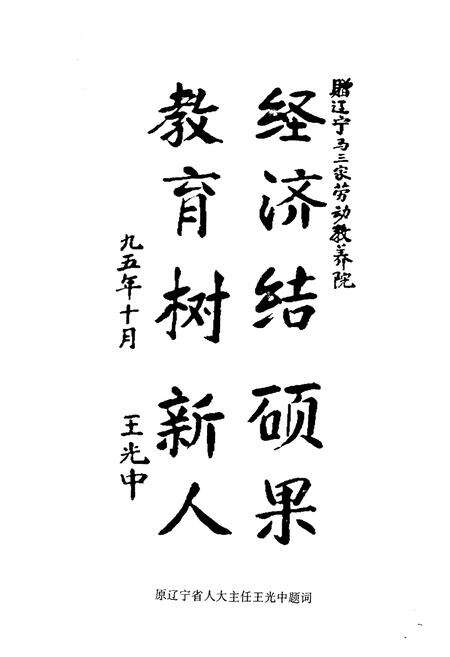 赠辽宁马三家劳动教养院
经济结硕果
教育树新人
九五年十月
王光中
原辽宁省人大主任王光中题词